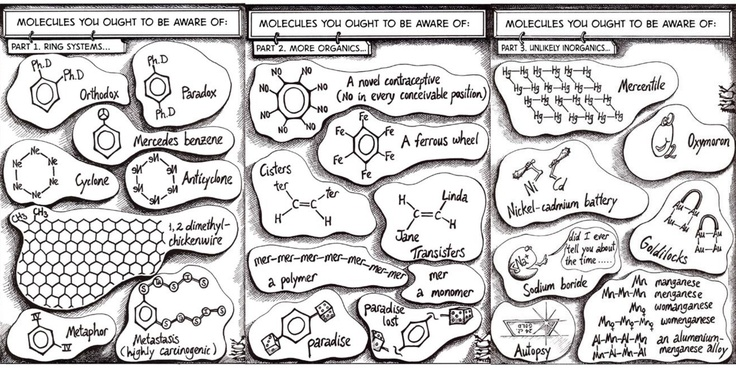 MOLECULES YOU OUGHT TO BE AWARE OF:
PART 1. RING SYSTEMS...
Ph.D
Ph.D
Orthodox
Ph.D
Ph.D
Paradox
Mercedes benzene
Ne
Ne
Ne
Ne
Ne
Ne
Cyclone
Anticyclone
CH3
CH3
1,2 dimethyl-
chickenwire
IV
IV
Metaphor
Metastasis
(highly carcinogenic)
NICK
MOLECULES YOU OUGHT TO BE AWARE OF:
PART 2. MORE ORGANICS...
NO
NO
NO
NO
NO
NO
NO
NO
A novel contraceptive
(No in every conceivable position)
Fe
Fe
Fe
Fe
Fe
Fe
A ferrous wheel
Cisters
ter
ter
H
H
Linda
H
H
Jane
Transisters
mer-mer-mer-mer-mer-mer
a polymer
mer
a monomer
paradise
paradise
lost
NICK
MOLECULES YOU OUGHT TO BE AWARE OF:
PART 3. UNLIKELY INORGANICS...
Hg-Hg-Hg-Hg
Hg-Hg-Hg-Hg
Hg-Hg-Hg-Hg
Hg-Hg-Hg-Hg
Mercentile
NICK
Oxymoron
Ni
Cd
Nickel-cadmium battery
Au-Au
Au-Au
Au-Au
Au-Au
Goldilocks
Na+
did I ever
tell you about
the time.....
Sodium boride
Autopsy
Mn manganese
Mn-Mn-Mn menganese
Mnq womanganese
Mnq-Mnq-Mnq womenganese
Al-Mn-Al-Mn an alumenium-
Mn-Al-Mn-Al menganese alloy